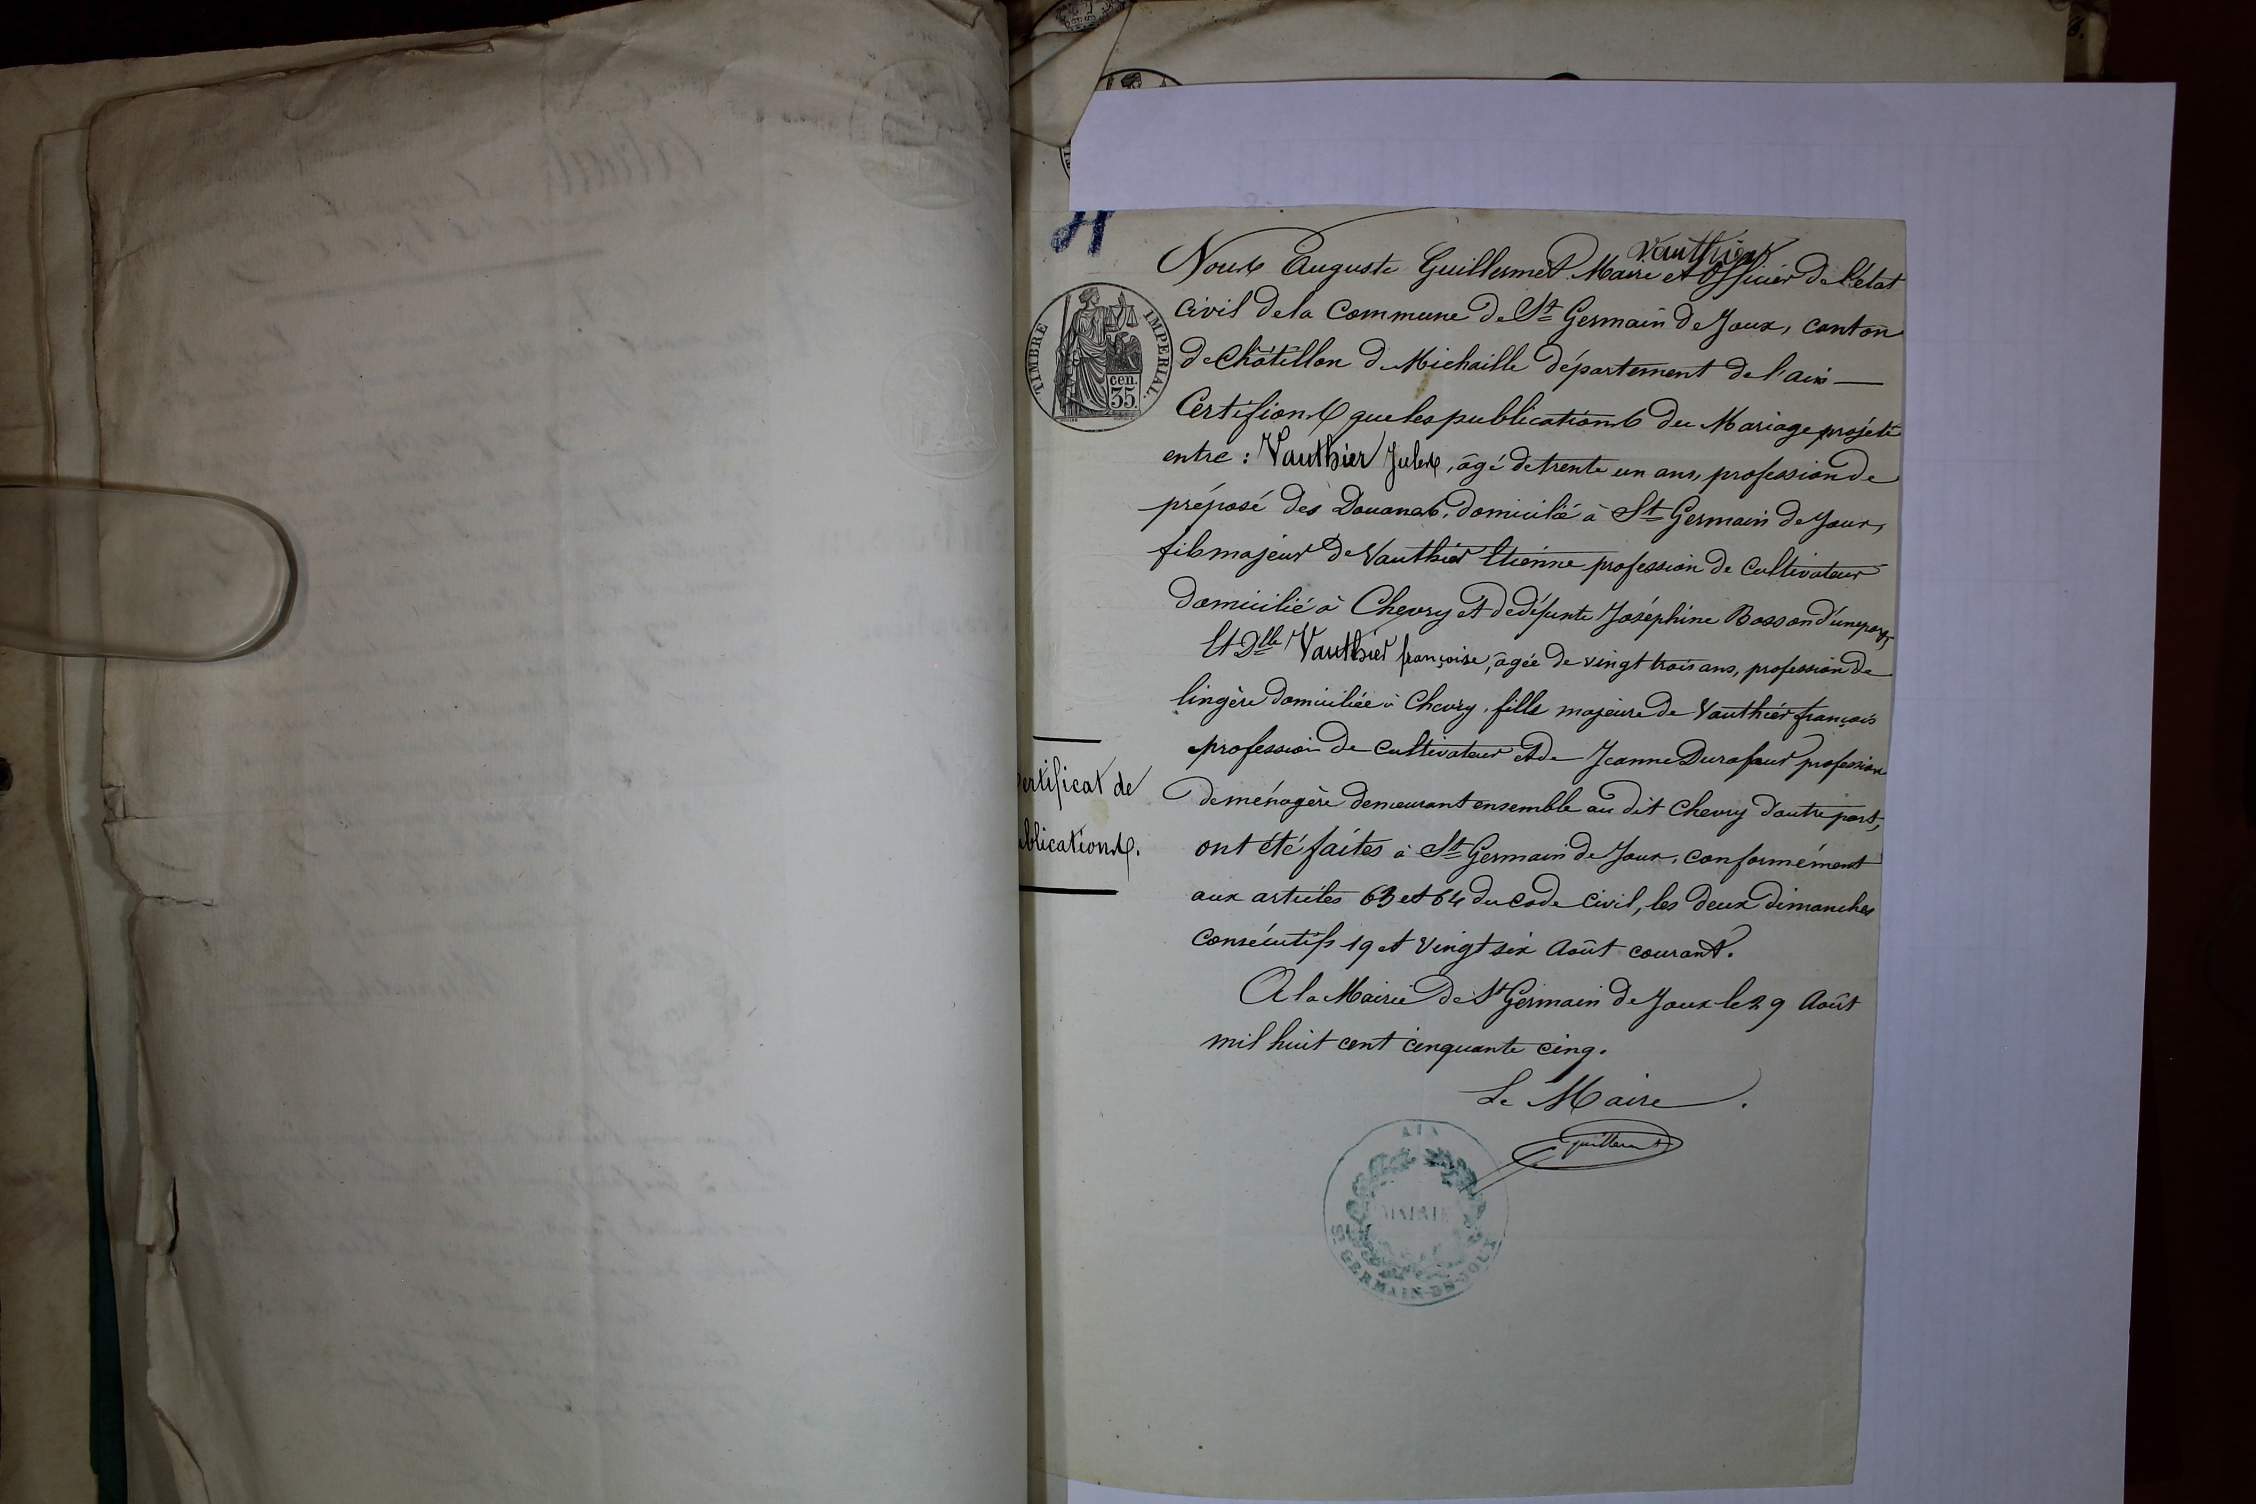 Vauthier
Nous Auguste Guillermet Maire et Officier de l'état
civil de la Commune de St Germain de Joux, canton
de Châtillon de Michaille département de l'ain
Certifions que les publications du Mariage projeté
entre : Vauthier Jules, âgé de trente un ans, profession de
préposé des Douanes, domicilié à St Germain de Joux,
fils majeur de Vauthier Etienne profession de Cultivateur
domicilié à Chevry et de défunte Joséphine Bosson d'une part,
Et Dlle Vauthier françoise, âgée de vingt trois ans, profession de
lingère domiciliée à Chevry, fille majeure de Vauthier françois
profession de Cultivateur et de Jeanne Durafour profession
de ménagère demeurant ensemble au dit Chevry d'autre part,
ont été faites à St Germain de Joux, conformément
aux articles 63 et 64 du code civil, les deux dimanches
consécutifs 19 et vingt six Août courant.
A la Mairie de St Germain de Joux le 29 Août
mil huit cent cinquante cinq.
Le Maire.
Guillermet
ertificat de
ublications.
TIMBRE IMPERIAL.
cen.
35.
AIN
MAIRIE
ST GERMAIN-DE-JOUX